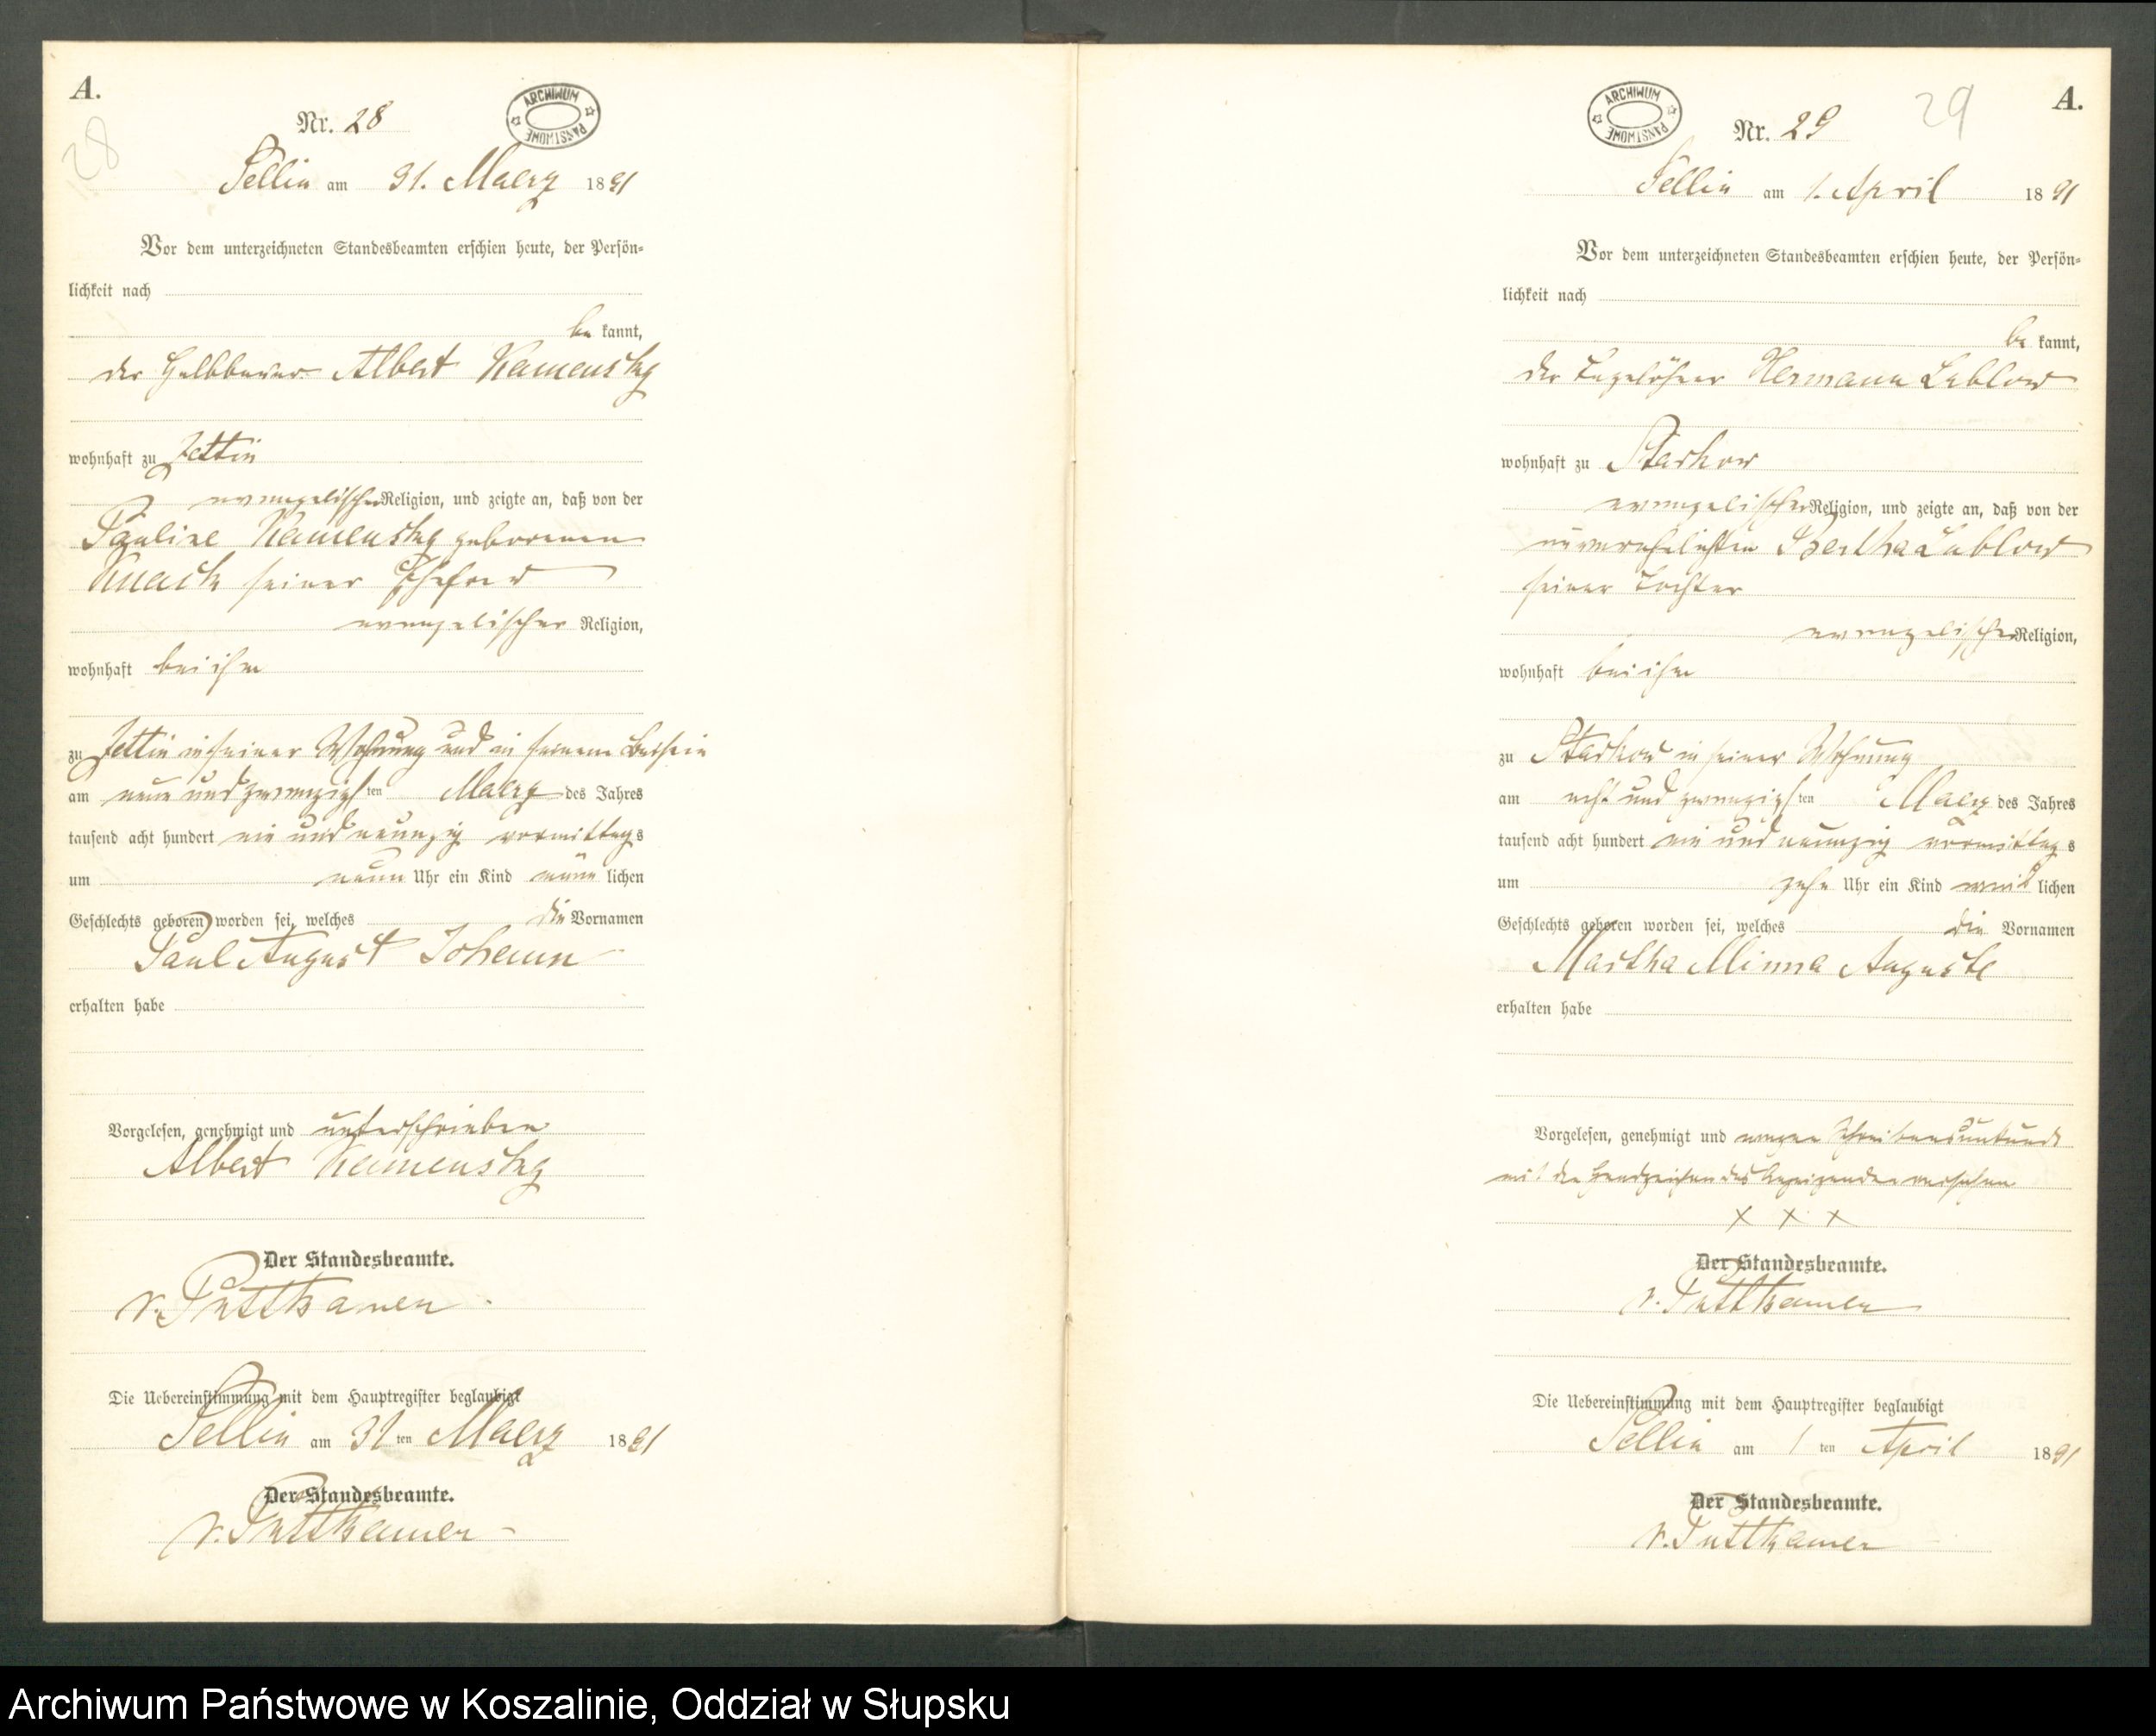 A.
28
Nr. 28
ARCHIWUM PAŃSTWOWE
Sellin am 31. Maerz 1891
Vor dem unterzeichneten Standesbeamten erschien heute, der Persön-
lichkeit nach
be kannt,
der Halbbauer Albert Kamensky
wohnhaft zu Jettin
evangelischer Religion, und zeigte an, daß von der
Pauline Kamensky geborenen
Knack seiner Ehefrau
evangelischer Religion,
wohnhaft bei ihm
zu Jettin in seiner Wohnung und in seinem Beisein
am neun und zwanzigsten Maerz des Jahres
tausend acht hundert ein und neunzig vormittags
um neun Uhr ein Kind männlichen
Geschlechts geboren worden sei, welches die Vornamen
Paul August Johann
erhalten habe
Vorgelesen, genehmigt und unterschrieben
Albert Kamensky
Der Standesbeamte.
v. Puttkamer
Die Uebereinstimmung mit dem Hauptregister beglaubigt
Sellin am 31 ten Maerz 1891
Der Standesbeamte.
v. Puttkamer
A.
29
Nr. 29
ARCHIWUM PAŃSTWOWE
Sellin am 1. April 1891
Vor dem unterzeichneten Standesbeamten erschien heute, der Persön-
lichkeit nach
be kannt,
der Tagelöhner Hermann Lablow
wohnhaft zu Starkow
evangelischer Religion, und zeigte an, daß von der
unverehelichten Bertha Lablow
seiner Tochter
evangelischer Religion,
wohnhaft bei ihm
zu Starkow in seiner Wohnung
am acht und zwanzigsten Maerz des Jahres
tausend acht hundert ein und neunzig vormittags
um zehn Uhr ein Kind weiblichen
Geschlechts geboren worden sei, welches die Vornamen
Martha Minna Auguste
erhalten habe
Vorgelesen, genehmigt und wegen Schreibensunkunde
mit den Handzeichen des Anzeigenden versehen
x x x
Der Standesbeamte.
v. Puttkamer
Die Uebereinstimmung mit dem Hauptregister beglaubigt
Sellin am 1 ten April 1891
Der Standesbeamte.
v. Puttkamer
Archiwum Państwowe w Koszalinie, Oddział w Słupsku